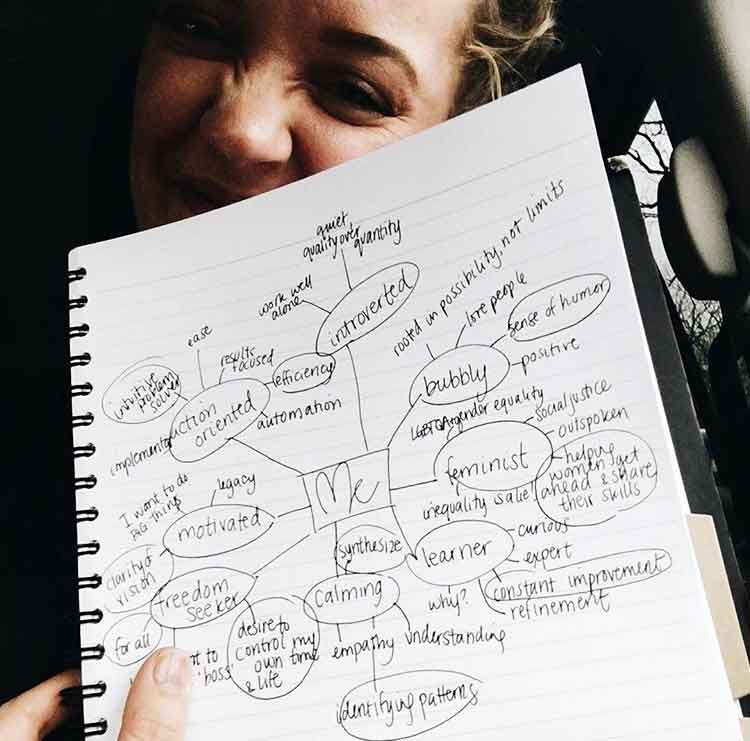 quiet
quality over quantity
work well
alone
introverted
rooted in possibility, not limits
love people
sense of humor
positive
bubbly
ease
results
focused
efficiency
intuitive
problem
solver
action
oriented
automation
LGBTQA+
gender equality
social justice
outspoken
feminist
helping
women get
ahead & share
their skills
Me
I want to do
BIG things
legacy
motivated
synthesize
learner
curious
expert
constant improvement
refinement
why?
clarity of
vision
freedom
seeker
for all
to
'boss'
desire to
control my
own time
& life
calming
empathy
understanding
identifying patterns